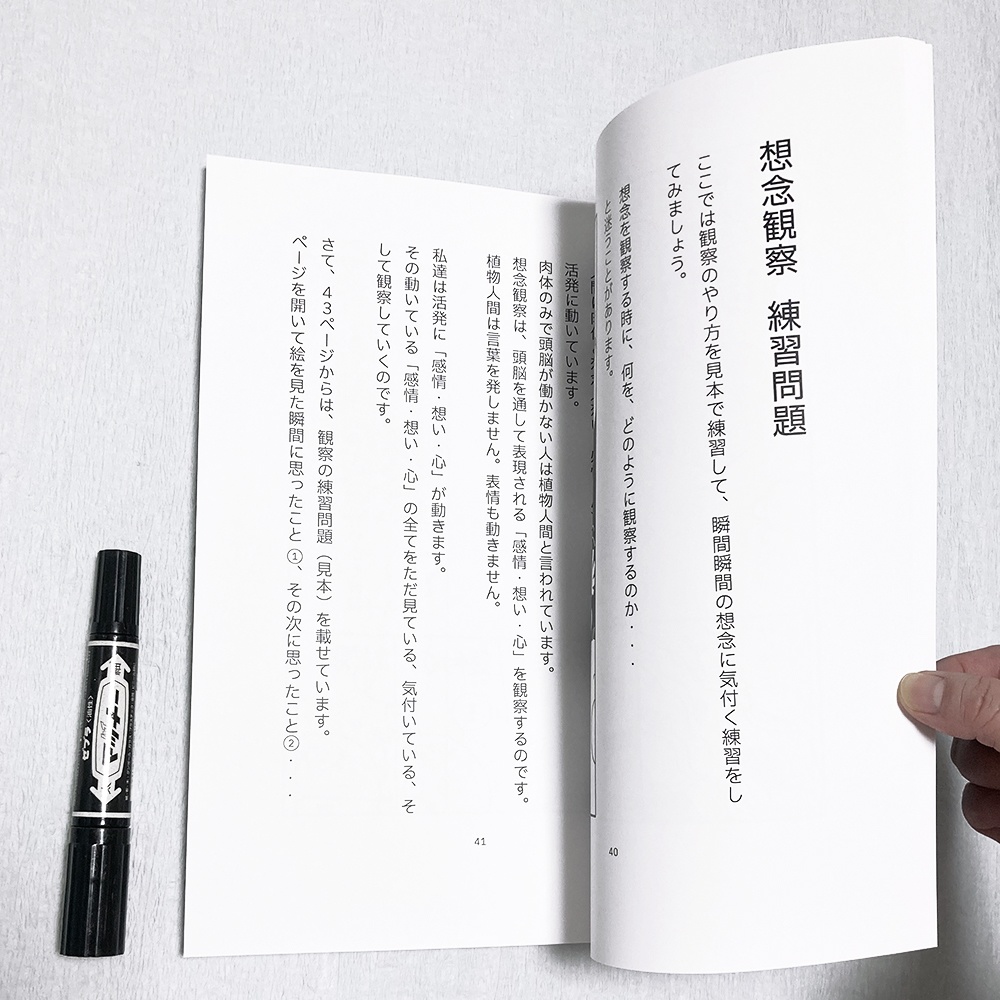 想念観察 練習問題
ここでは観察のやり方を見本で練習して、瞬間瞬間の想念に気付く練習をし
てみましょう。
想念を観察する時に、何を、どのように観察するのか・・・
と迷うことがあります。
40
活発に動いています。
肉体のみで頭脳が働かない人は植物人間と言われています。
想念観察は、頭脳を通して表現される「感情・想い・心」を観察するのです。
植物人間は言葉を発しません。表情も動きません。
私達は活発に「感情・想い・心」が動きます。
その動いている「感情・想い・心」の全てをただ見ている、気付いている、そ
して観察していくのです。
さて、43ページからは、観察の練習問題（見本）を載せています。
ページを開いて絵を見た瞬間に思ったこと①、その次に思ったこと②・・・
41